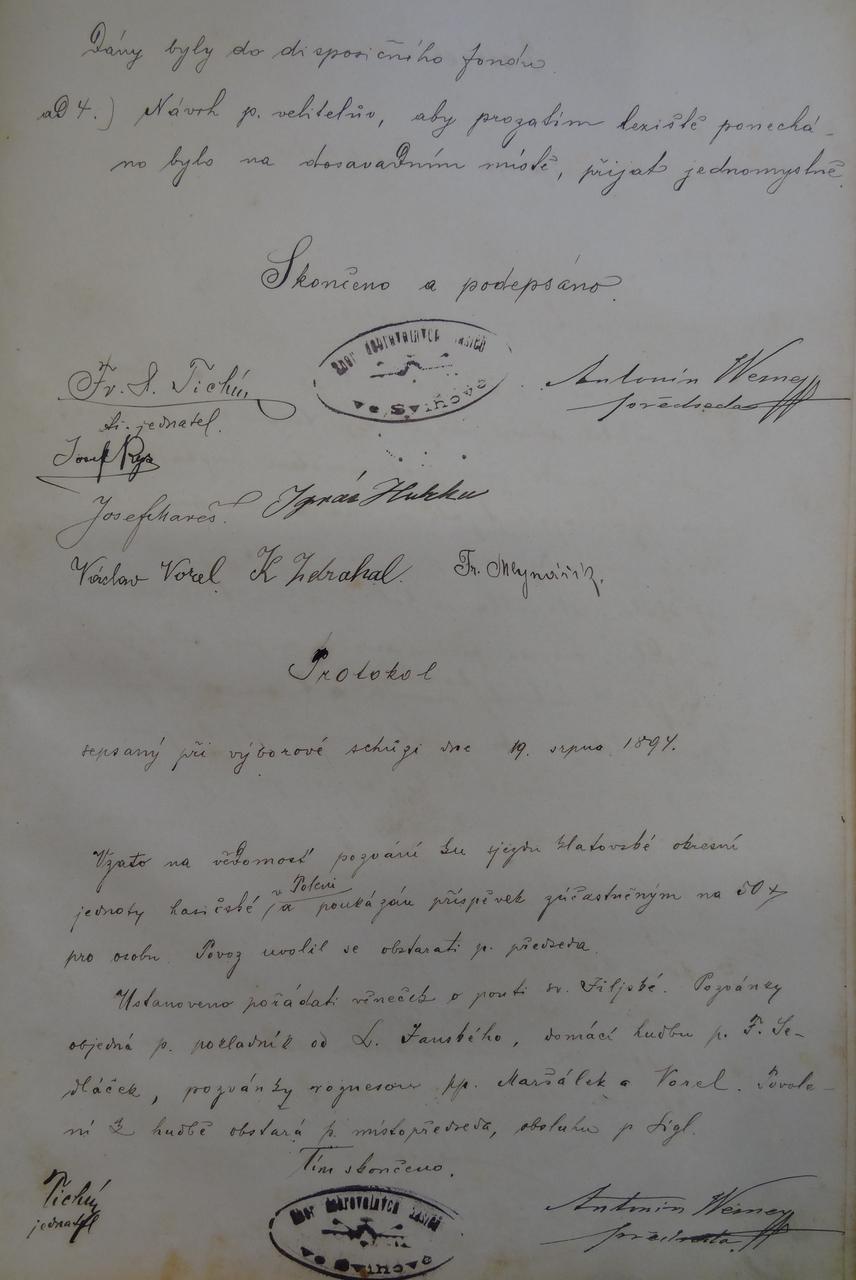 Dány byly do disposičního fondu.
ad 4.) Návrh p. velitelův, aby prozatím leziště ponechá-
no bylo na dosavadním místě, přijat jednomyslně.
Skončeno a podepsáno.
Sbor dobrovolných hasičů
ve Svihově
Fr. S. Tichý,
t. č. jednatel.
Antonín
předseda
Josef
Josef Mareš. Ignác
Václav Vorel K Zdrahal. Fr. Mlynařík.
Protokol
sepsaný při výborové schůzi dne 19. srpna 1894.
Vzato na vědomost pozvání ku sjezdu klatovské okresní
jednoty hasičské v Poleni a poukázán příspěvek zúčastněným na 50 x
pro osobu. Povoz uvolil se obstarati p. předseda.
Ustanoveno pořádati věneček o pouti sv. Jiljské. Pozvánky
objedná p. pokladník od L. Zauského, domácí hudbu p. F. Se-
dláček, pozvánky roznesou pp. Maršálek a Vorel. Povole-
ní k hudbě obstará p. místopředseda, obsluhu p Sigl.
Tím skončeno.
Tichý
jednatel
Sbor dobrovolných hasičů
ve Svihově
Antonín
předseda.